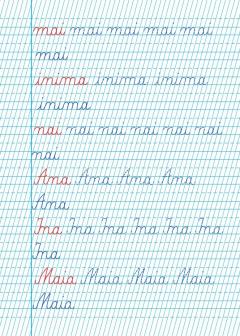 mai mai mai mai mai
mai
inima inima inima
inima
nai nai nai nai nai nai
nai
Ana Ana Ana Ana
Ana
Ina Ina Ina Ina Ina Ina
Ina
Maia Maia Maia Maia
Maia